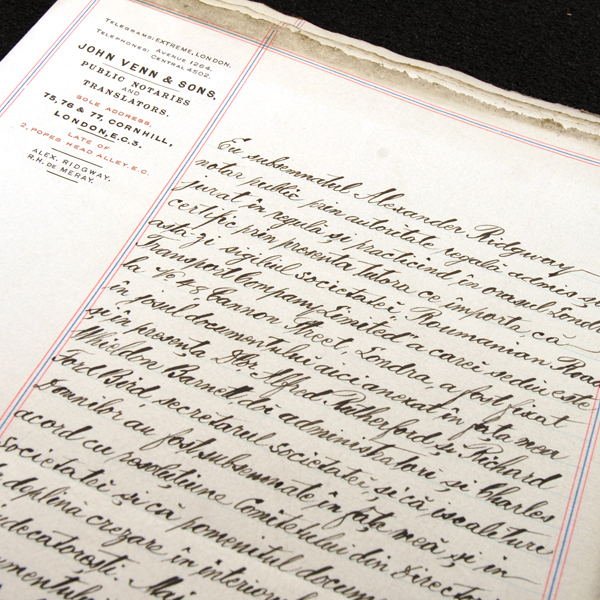 TELEGRAMS: EXTREME, LONDON.
TELEPHONES: AVENUE 1264.
CENTRAL 4502.
JOHN VENN & SONS,
PUBLIC NOTARIES
AND
TRANSLATORS.
SOLE ADDRESS.
75, 76 & 77, CORNHILL,
LONDON, E.C.3.
LATE OF
2, POPES HEAD ALLEY. E.C.
ALEX. RIDGWAY.
R.H. DE MERAY.
Eu subsemnatul Alexander Ridgway
notar public prin autoritate regala admis și
jurat în regulă și practicând în orașul Londra
certific prin prezenta tutora ce importa, că
astă-zi sigiliul societatei, "Roumanian Road
Transport Company Limited" a carei sediu este
la No 48, Cannon Street, Londra, a fost fixat
în josul documentului aici anexat în fața mea
și în prezența Dlor Alfred Rutherford și Richard
Whieldon Barnett doi administratori și Charles
Ford Bird, secretarul societatei și că iscaliturile
Domnilor au fost subsemnate în fața mea și in
acord cu rezolutiune Comitetului din directori
societatei și că pomenitul docum
deplina crezare în interiorul
judecătorești. Mai